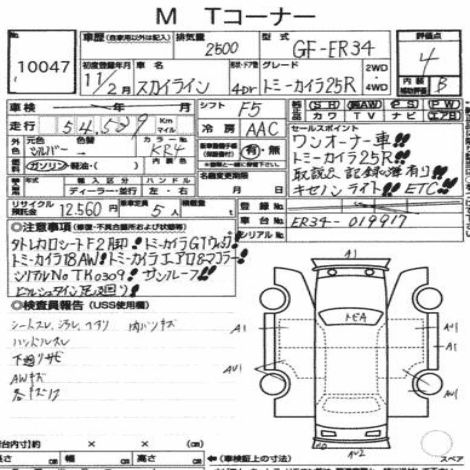 M Tコーナー
10047
車歴 (自家用以外は記入)
排気量
2500
型式
GF-ER34
評価点
4
初度登録年月
11/2月
車名
スカイライン
形状・ドア数
4Dr
グレード
トミーカイラ25R
2WD・4WD
内装補助評価
B
車検 年 月
シフト
F5
走行
54,529
Km
マイル
冷房
AAC
色
元色
シルバー
色替
カラーNo.
KR4
ガソリン・軽油・( )
(有)・無
名義変更期限
年 月 日
ＳＲ ＡＷ ＰＳ ＰＷ
カワ ＴＶ ナビ エアB
セールスポイント
ワンオーナー車!!
トミーカイラ25R!!
取説&記録簿有り!!
キセノンライト!! ETC!!
車歴
型式
輸入区分
ディーラー・並行
ハンドル
左・右
リサイクル預託金
12.560円
乗車定員
5人
積載量
登録No.
車台No.
ER34-019917
シリアルNo.
◎注意事項 (修復・不具合箇所および状態等)
タトレカロシートF2脚!! トミーカイラGTウィング!!
トミーカイラ18AW!! トミーカイラエアロ&マフラー!!
シリアルNo TK0309!! サンルーフ!!
ビルシュタイン足廻り!!
◎検査員報告 (USS使用欄)
シートスレ、
ハンドルスレ
下廻りサビ
AWキズ
A1
トビA
A1
A1
AU1
AU1
AU2
スペア
荷台内寸(約) × ×
長さ cm 幅 cm 高さ cm
←(車検証上の寸法)